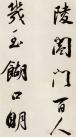 陵闔門百人
幾至餬口明